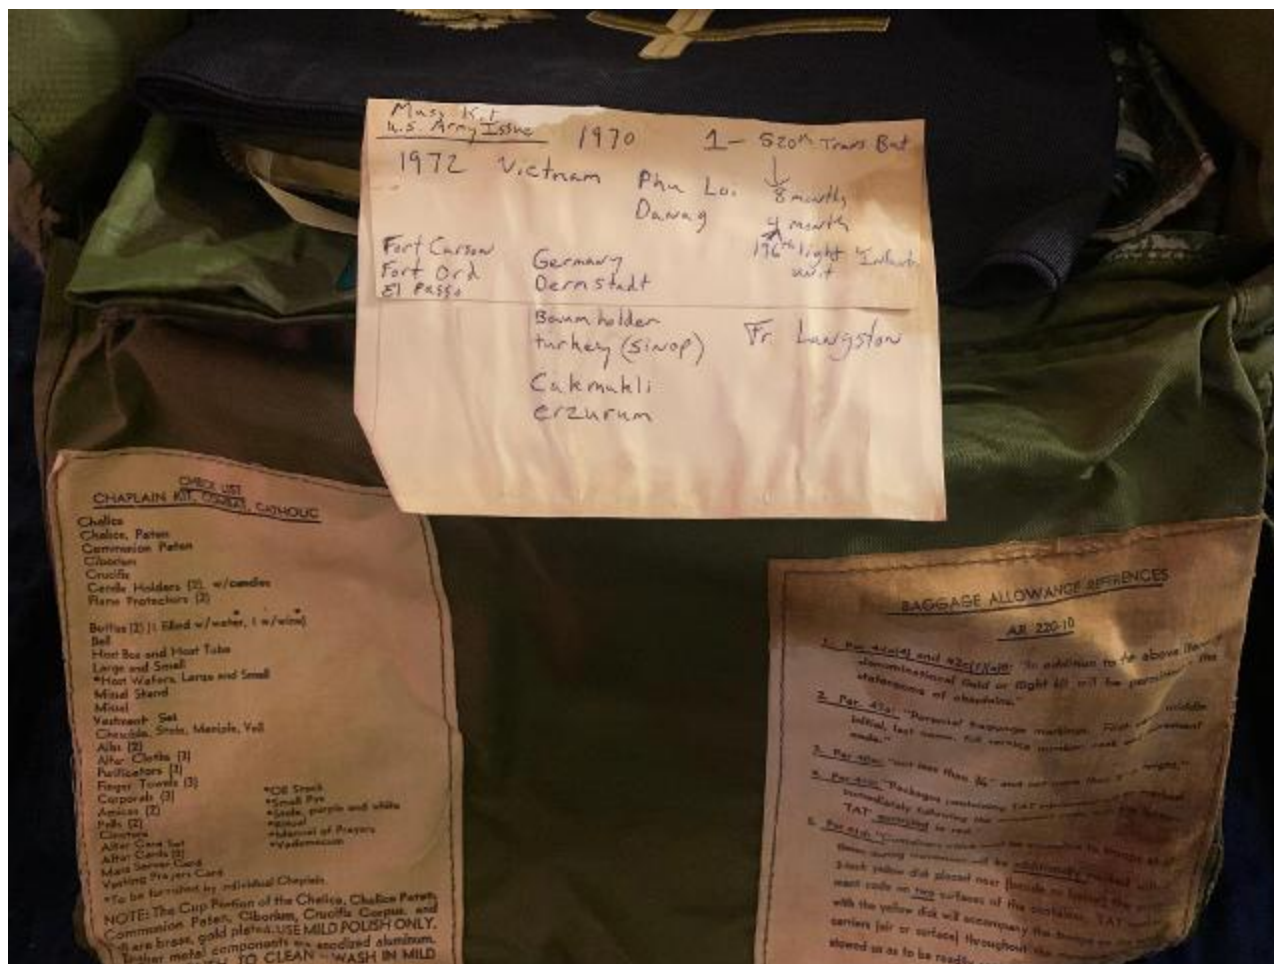 Mass Kit
U.S. Army Issue
1970
1- 520th Trans Bat
1972 Vietnam
Phu Loi
8 months
Danag
4 month
196th light Infantry
unit
Fort Carson
Fort Ord
El Passo
Germany
Dermstadt
Baumholder
turkey (SiNOP)
Cakmakli
erzurum
Fr. Langston
CHECK LIST
CHAPLAIN KIT, COMBAT, CATHOLIC
Chalice
Chalice, Paten
Communion Paten
Ciborium
Crucifix
Candle Holders (2), w/candles
Flame Protectors (2)
Bottles (2) (1 filled w/water, 1 w/wine)
Bell
Host Box and Host Tube
Large and Small
*Host Wafers, Large and Small
Missal Stand
Missal
Vestment Set
Chasuble, Stole, Maniple, Veil
Albs (2)
Altar Cloths (3)
Purificators (3)
Finger Towels (3)
Corporals (3)
Amices (2)
Palls (2)
Cincture
Altar Card Set
Altar Cards (3)
Mass Server Card
Vesting Prayers Card
*Oil Stock
*Small Pyx
*Stole, purple and white
*Ritual
*Manual of Prayers
*Vademecum
*To be furnished by individual Chaplain.
NOTE: The Cup Portion of the Chalice, Chalice Paten,
Communion Paten, Ciborium, Crucifix Corpus, and
are brass, gold plated. USE MILD POLISH ONLY.
other metal components are anodized aluminum.
TO CLEAN - WASH IN MILD
BAGGAGE ALLOWANCE REFERENCES
AR 220-10
1. Par. "In addition to the above items
denominational field or flight kit will be permitted the
staterooms of chaplains."
2. Par. "Personal baggage markings. First name, middle
initial, last name, full service number, rank and movement
code."
3. Par. "not less than ¾" and not more than height."
4. Par. "Packages containing TAT
immediately following the
TAT in red."
5. Par. "Containers which
these during movement will be additionally marked with
3-inch yellow disk placed near (beside or below) the
ment code on two surfaces of the container. TAT
with the yellow disk will accompany the troops on the
carriers (air or surface) throughout the
stowed so as to be readily